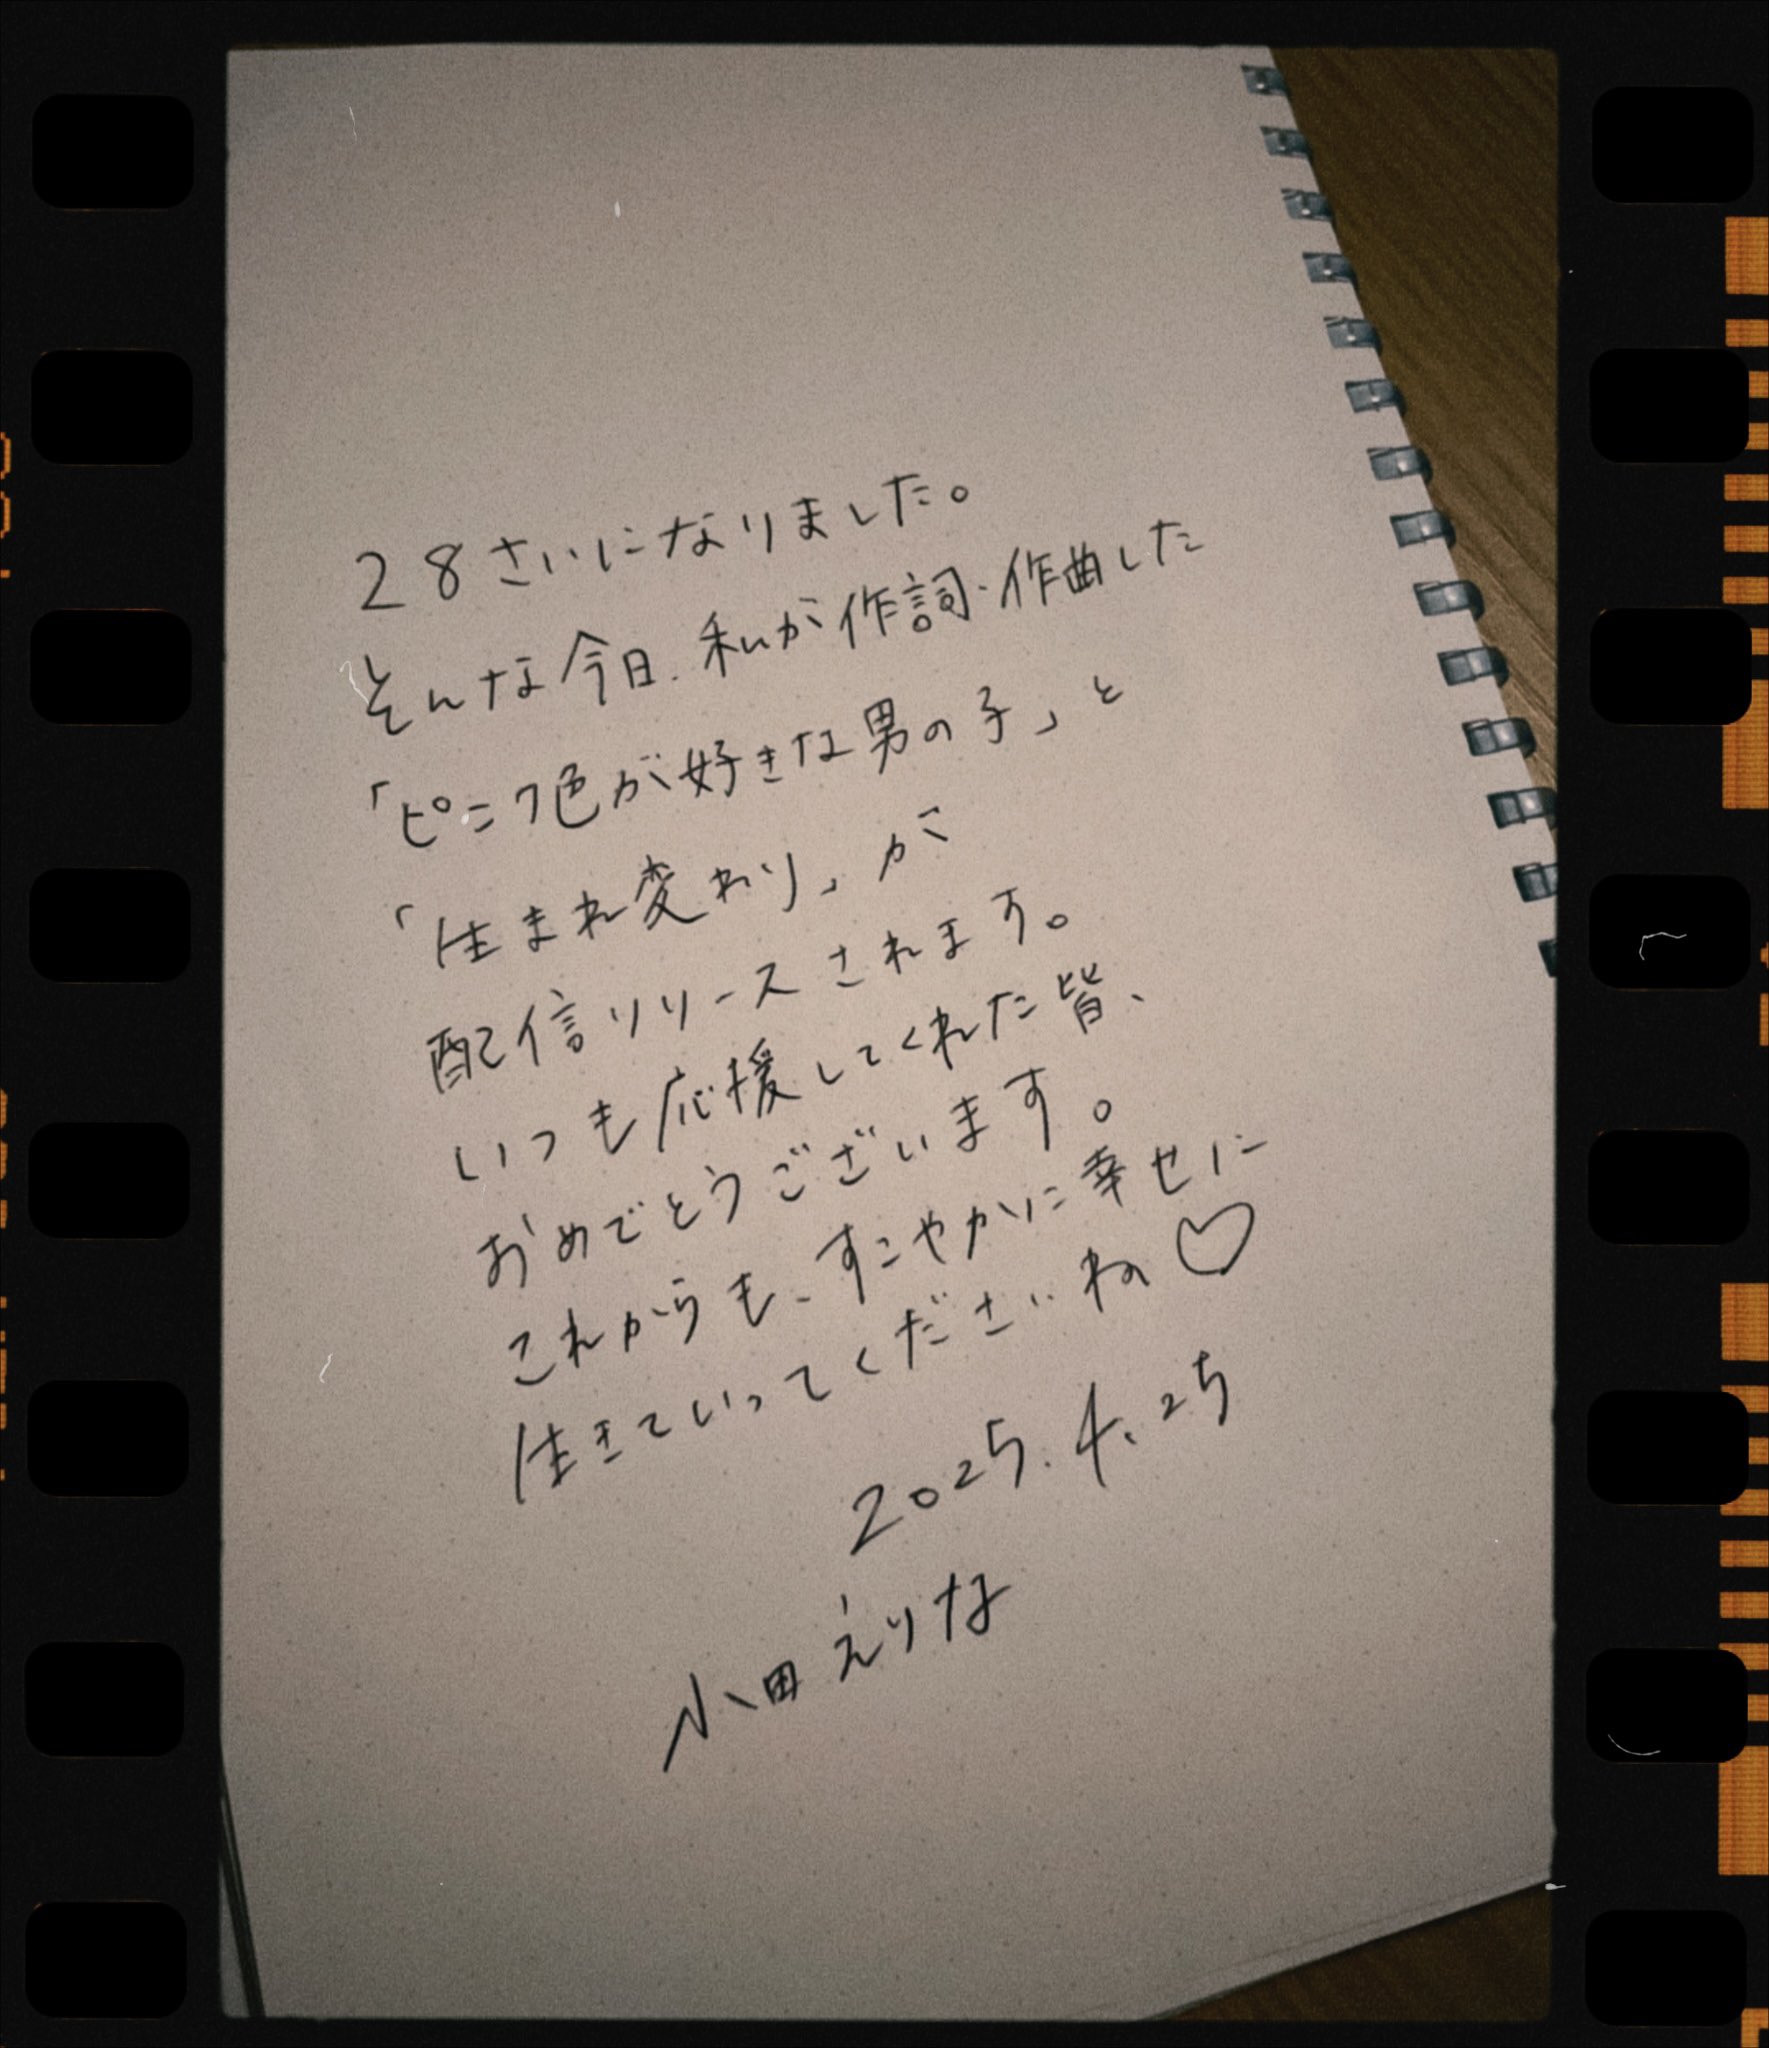 28さいになりました。
そんな今日、私が作詞・作曲した
「ピンク色が好きな男の子」と
「生まれ変わり」が
配信リリースされます。
いつも応援してくれた皆、
おめでとうございます。
これからも、すこやかに幸せに
生きていってくださいね♡
2025.4.25
小田えりな